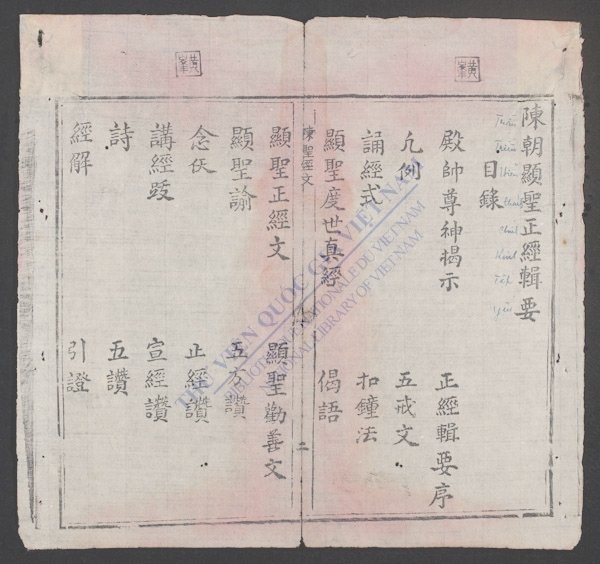 陳朝顯聖正經輯要
目錄
殿帥尊神揭示 正經輯要序
凡例 五戒文
誦經式 扣鐘法
顯聖度世真經 偈語
陳聖經文 二
顯聖正經文 顯聖勸善文
顯聖諭 五方讚
念仸 正經讚
講經跋 宣經讚
詩 五讚
經解 引證
THƯ VIỆN QUỐC GIA VIỆT NAM
BIBLIOTHÈQUE NATIONALE DU VIETNAM
NATIONAL LIBRARY OF VIETNAM